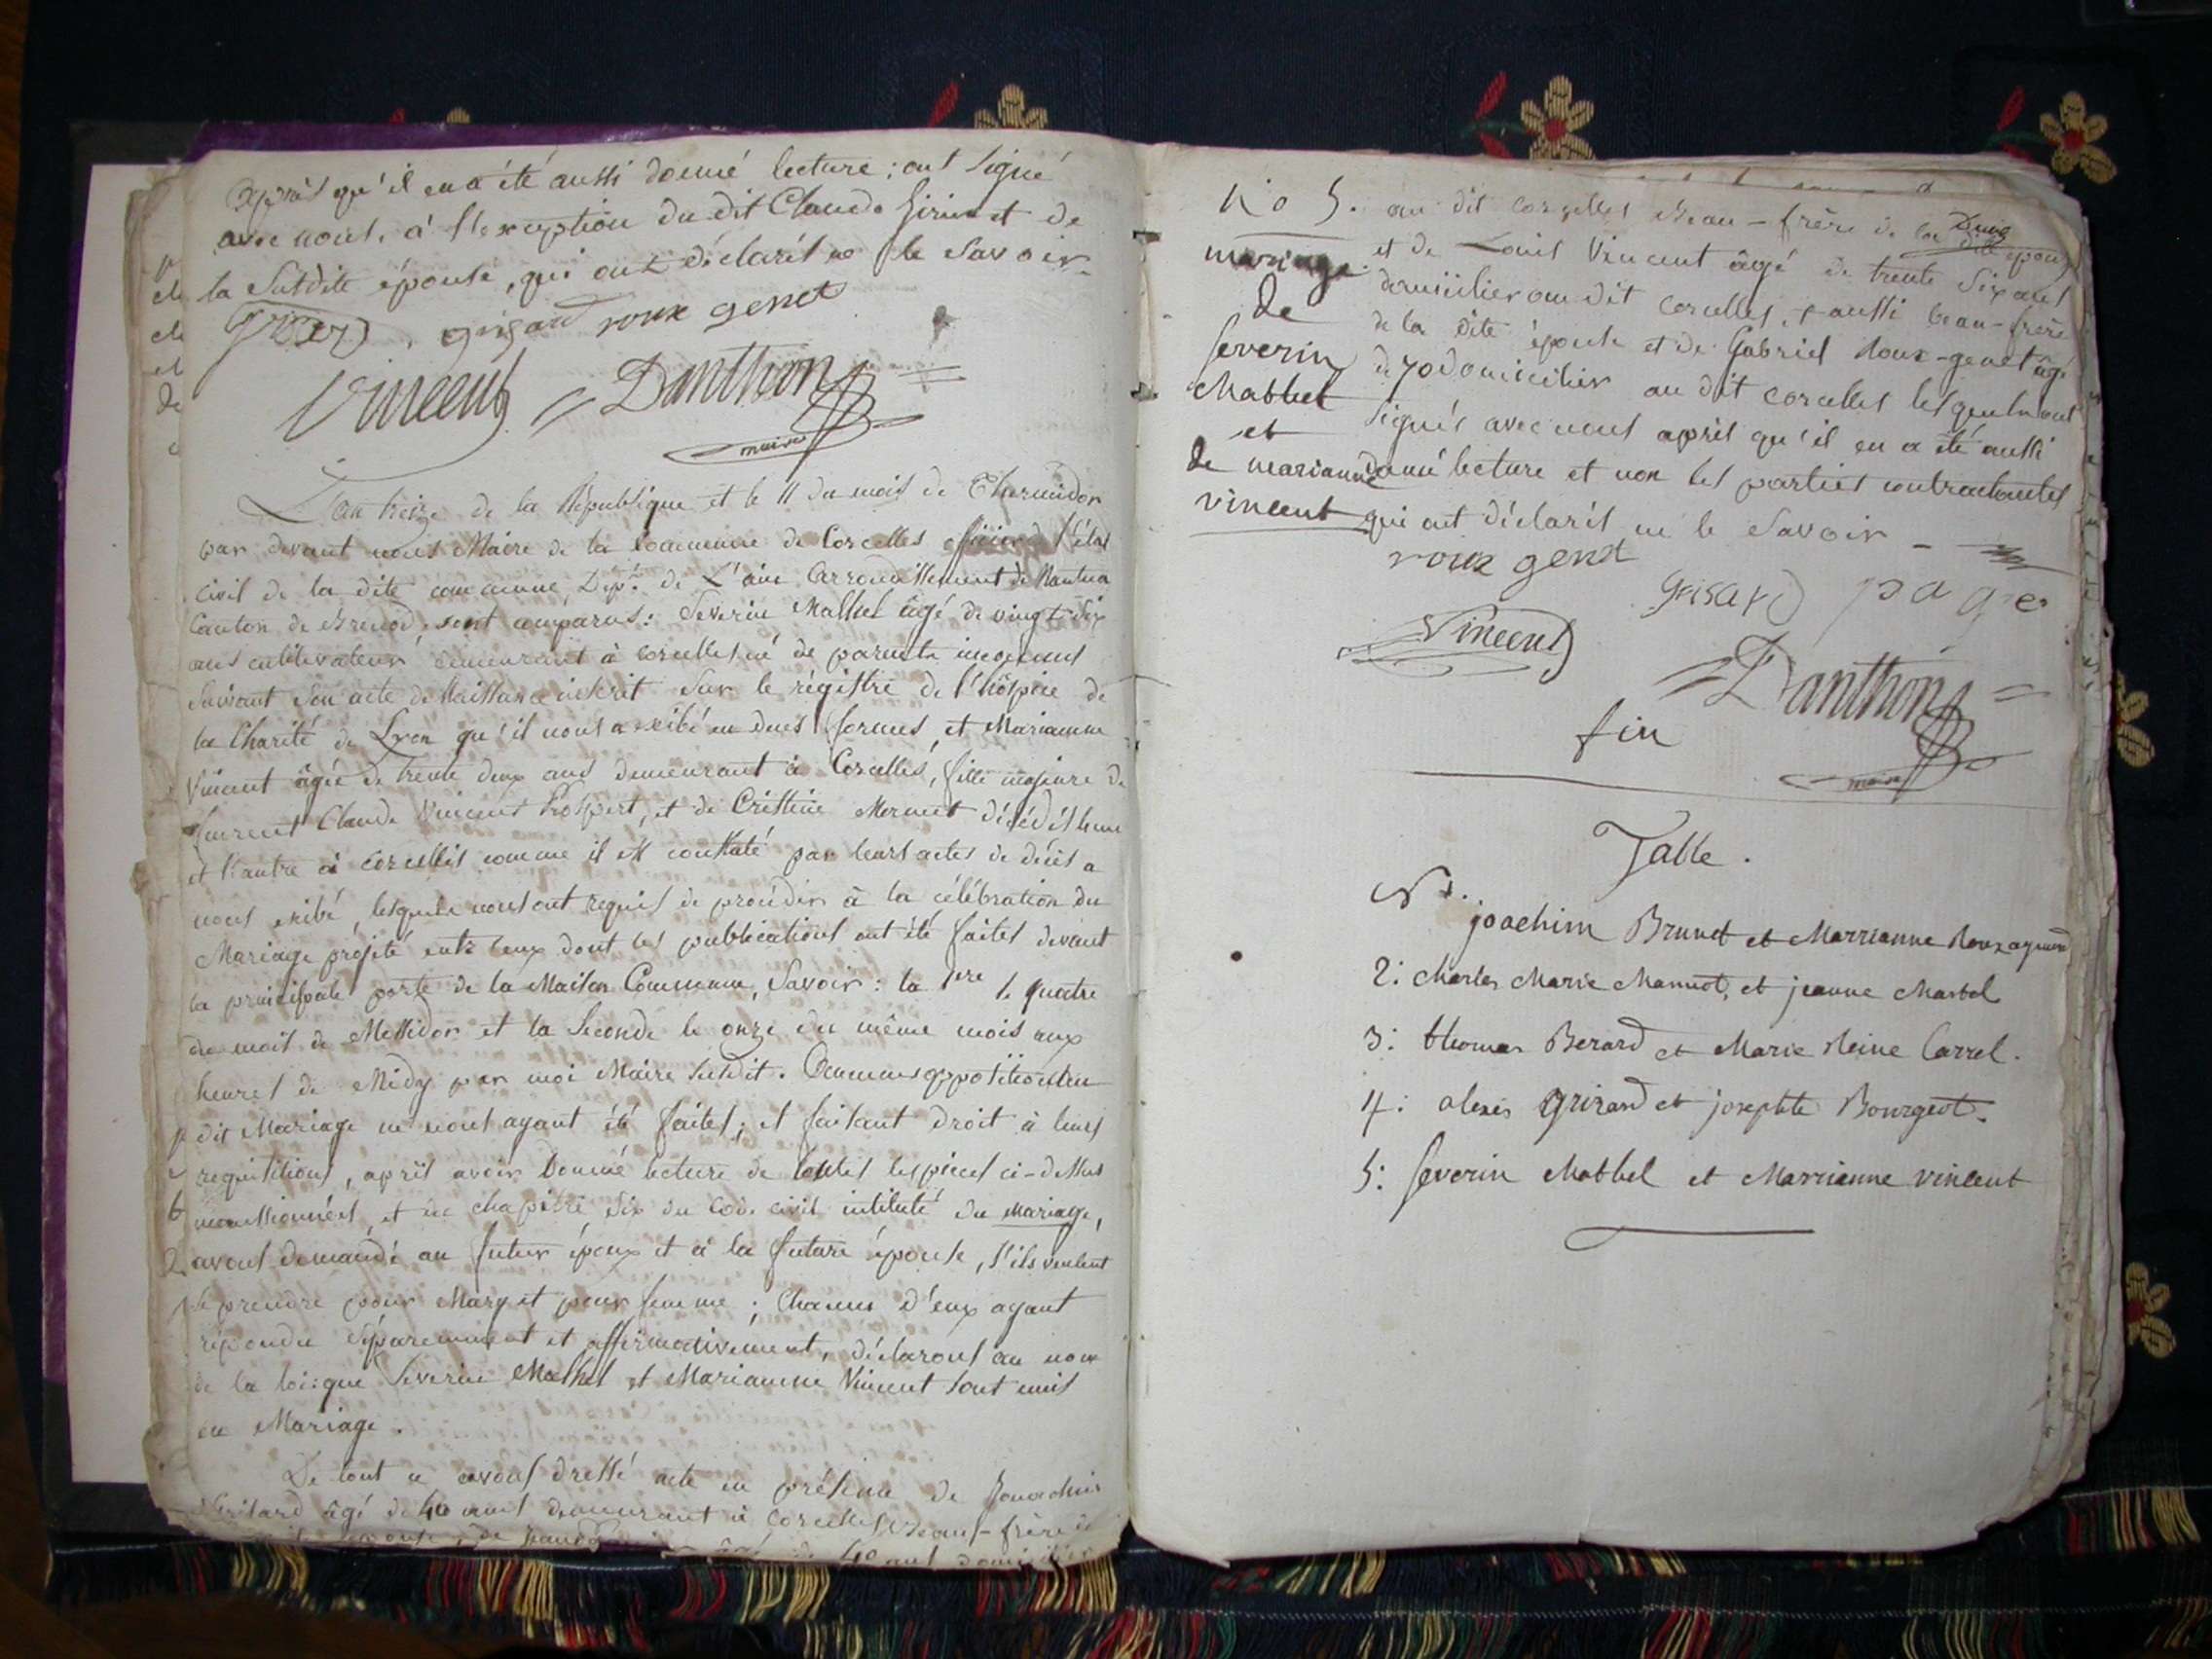 après qu'il en a été aussi donné lecture ; ont signé
avec nous, à l'exception du dit Claude Girin et de
la susdite épouse, qui ont déclarés ne le savoir
grisard roux genet
Vincent Danthon
maire
L'an treize de la République et le 11 du mois de Thermidor
par devant nous Maire de la commune de Corcelles officier de l'état
civil de la dite commune, Dépt. de L'ain arrondissement de Nantua
Canton de Brenod, sont comparus : Severin Mathel âgé de vingt six
ans cultivateur demeurant à Corcelles né de parents inconnus
suivant son acte de Naissance inscrit sur le régistre de l'hôspice de
la Charité de Lyon qu'il nous a exibé en dues formes, et Marianne
Vincent âgée de trente deux ans demeurant à Corcelles, fille majeure de
furent Claude Vincent Prospert, et de Cristine Mermet décédés l'une
et l'autre à Corcelles comme il est constaté par leurs actes de décès a
nous exibé, lesquels nous ont requis de procéder à la célébration du
Mariage projeté entr'eux dont les publications ont été faites devant
la principale porte de la Maison Commune, Savoir : la 1re le quatre
du mois de Messidor et la Seconde le onze du même mois aux
heures de Midy par moi Maire susdit. Aucunes oppositions au
dit Mariage ne nous ayant été faites ; et faisant droit à leurs
requisitions, après avoir Donné lecture de toutes les pieces ci-dessus
mentionnées, et du chapitre six du Code civil intitulé du Mariage,
avons demandé au futur époux et à la future épouse, s'ils veulent
se prendre pour Mary et pour femme ; Chacun d'eux ayant
répondu séparemment et affirmativement, déclarons au nom
de la loi : que Severin Mathel et Marianne Vincent sont unis
en Mariage.
De tout ce avons dressé acte en présence de Jouachin
Grisard âgé de 40 ans demeurant à Corcelles Beau-frère de
40 ans domicilié
No 5.
mariage
De
Severin
Mathel
et
de marianne
vincent
au dit Corcelles Beau-frère de la dite épouse
et de Louis Vincent âgé de trente six ans
domicilier au dit Corcelles, aussi beau-frère
de la dite épouse et de Gabriel Roux-genet âgé
de 70 domicilier au dit Corcelles lesquels ont
signés avec nous après qu'il en a été aussi
donné lecture et non les parties contractantes
qui ont déclarés ne le Savoir
roux genet
grisard page
Vincent
Danthon
maire
fin
Table.
Nos.
joachim Brunet et Marrianne Roux
2: Charles Marie Mannet, et jeanne Martel
3: thomas Berard et Marie Reine Carrel.
4: alexis grisard et josephte Bourgeot.
5: Severin Mathel et Marrianne vincent